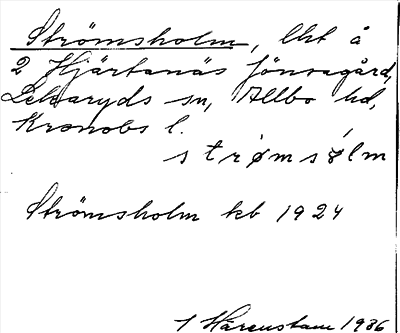 Strömsholm, lht å
2 Hjärtanäs Jönsagård,
Lekaryds sn, Allbo hd,
Kronobs l.
strømsø̀lm
Strömsholm kb 1924
1 Härenstam 1936